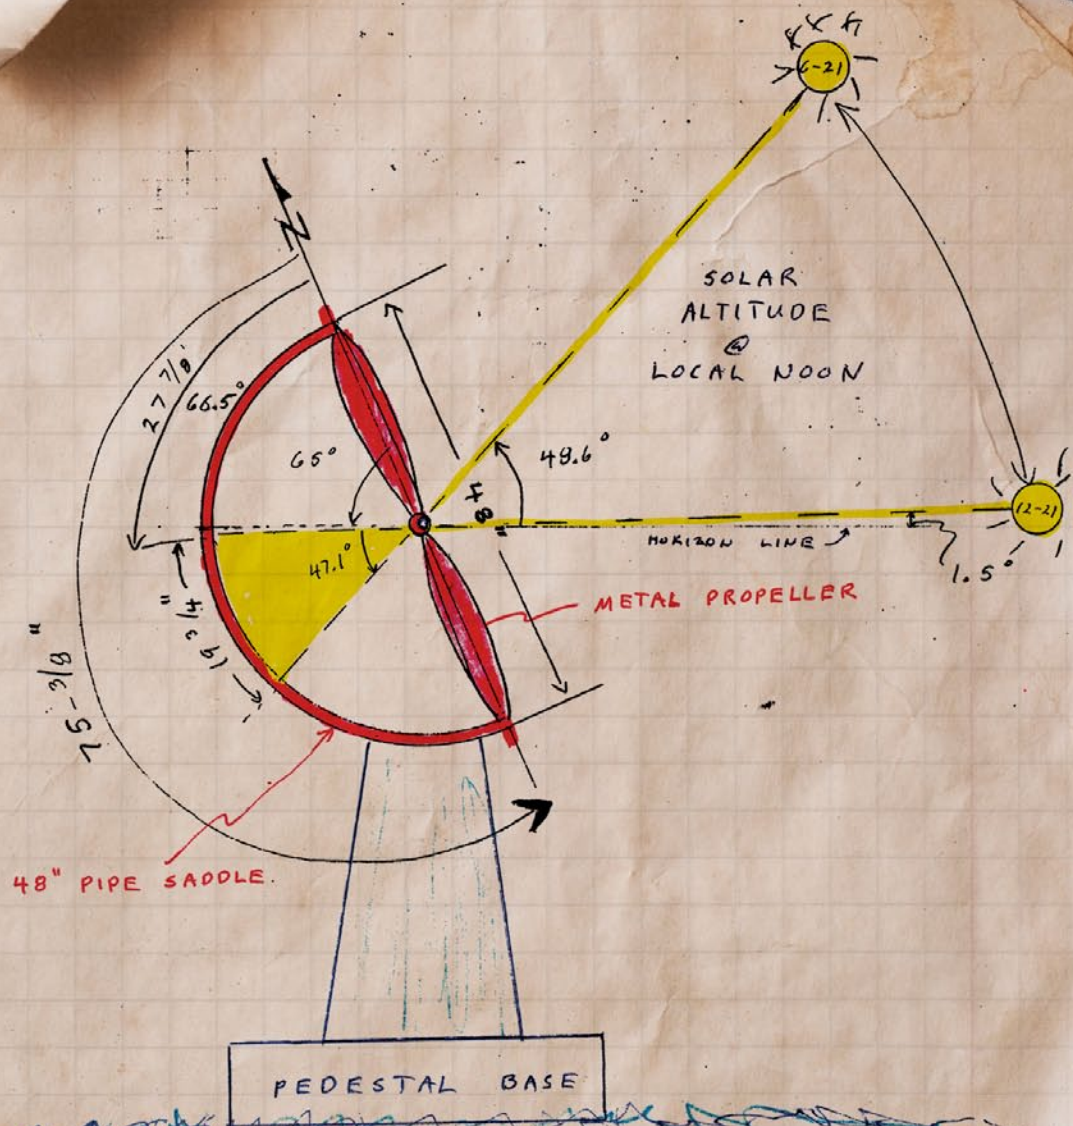 6-21
N
SOLAR
ALTITUDE
@
LOCAL NOON
27 7/8"
66.5°
65°
48.6°
48"
12-21
HORIZON LINE
1.5°
47.1°
19 3/4"
METAL PROPELLER
75-3/8"
48" PIPE SADDLE.
PEDESTAL BASE